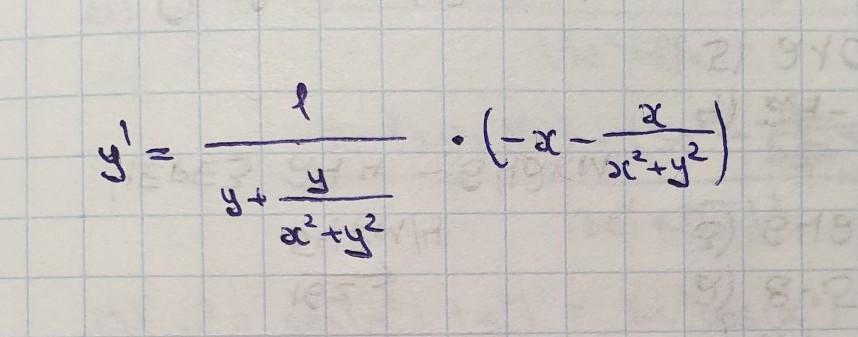 y' = 1/(y + y/(x² + y²)) · (-x - x/(x² + y²))